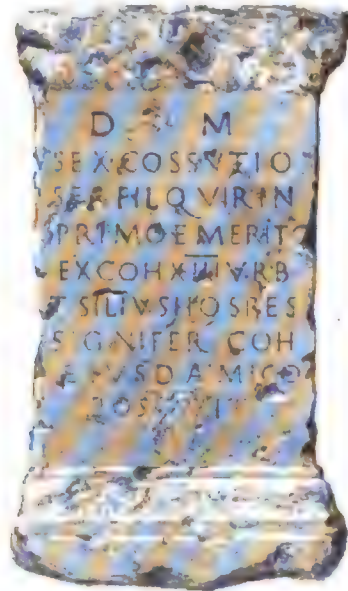 D M
SEX COSSVTIO
SEX FIL QVIRIN
PRIMO EMERITO
EX COH XIII VRB
T SILIVS HOSPES
SIGNIFER COH
EIVSD AMICO
POSVIT